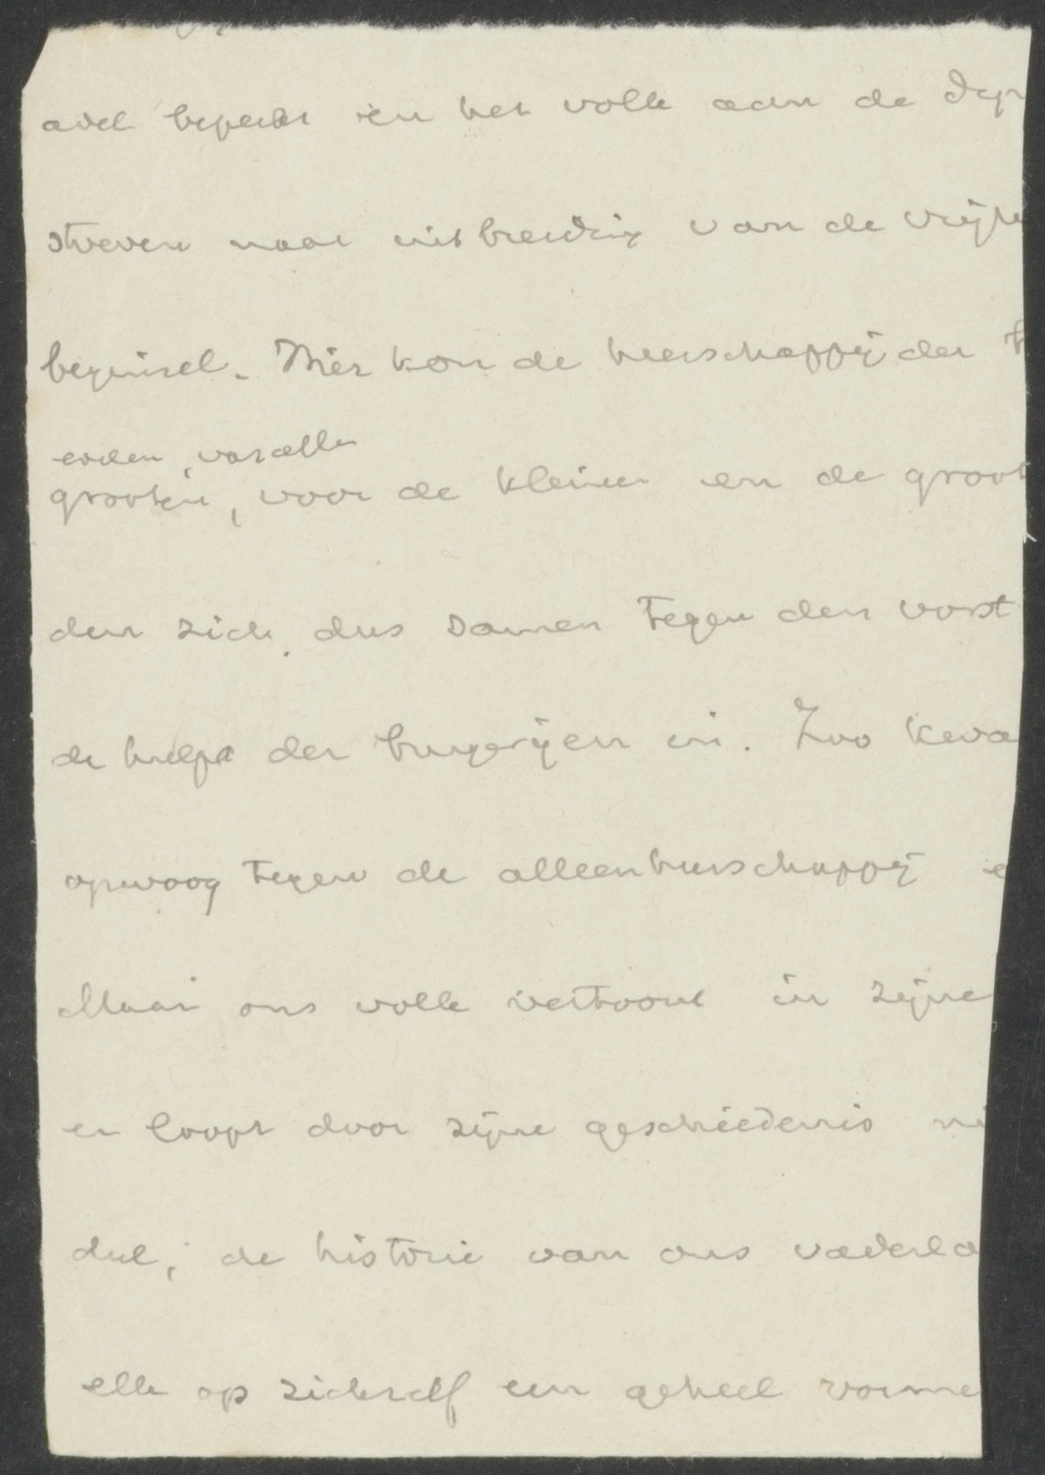 adel beperkt en het volk aan de
streven naar uitbreiding van de vrijhe
beginsel. Hier kon de heerschappij der
eeden, vasallen
grooten, voor de kleine en de groot
den zich dus samen tegen den vorst
de hulp der burgerijen in. Zoo kwa
opwoog tegen de alleenheerschappij e
Maar ons volk vertoont in zijne
er loopt door zijne geschiedenis ni
deel; de historie van ons vaderla
elk op zichzelf een geheel vorme